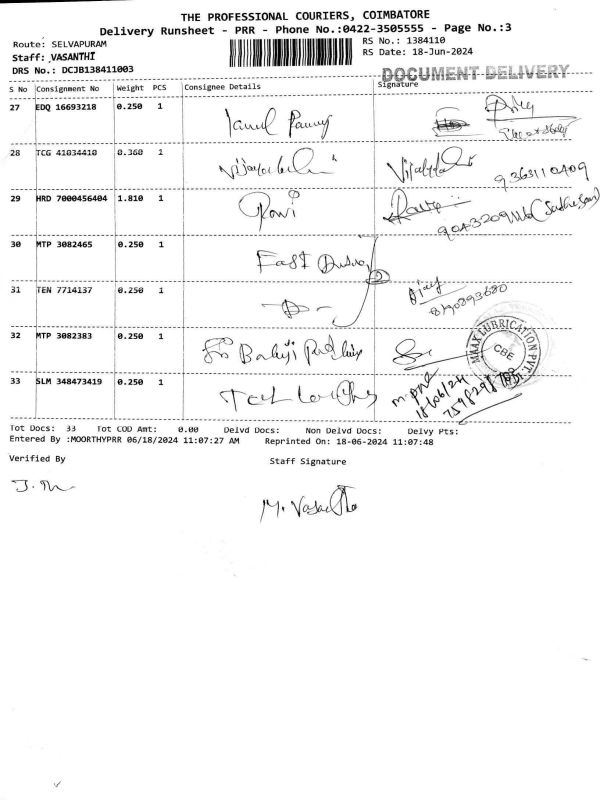 THE PROFESSIONAL COURIERS, COIMBATORE
Delivery Runsheet - PRR - Phone No.:0422-3505555 - Page No.:3
Route: SELVAPURAM
RS No.: 1384110
Staff: VASANTHI
RS Date: 18-Jun-2024
DRS No.: DCJB138411003
DOCUMENT DELIVERY
S No Consignment No Weight PCS Consignee Details Signature
27 EDQ 16693218 0.250 1
28 TCG 41034410 0.360 1
9363110409
29 HRD 7000456404 1.810 1 Ravi
30 MTP 3082465 0.250 1 Fast
31 TEN 7714137 0.250 1 Ajay
8190893680
32 MTP 3082383 0.250 1 Sri Balaji
MAAX LUBRICATION PVT. LTD.
CBE
33 SLM 348473419 0.250 1
18/06/24
Tot Docs: 33 Tot COD Amt: 0.00 Delvd Docs: Non Delvd Docs: Delvy Pts:
Entered By :MOORTHYPRR 06/18/2024 11:07:27 AM Reprinted On: 18-06-2024 11:07:48
Verified By
Staff Signature
M. Vasantha